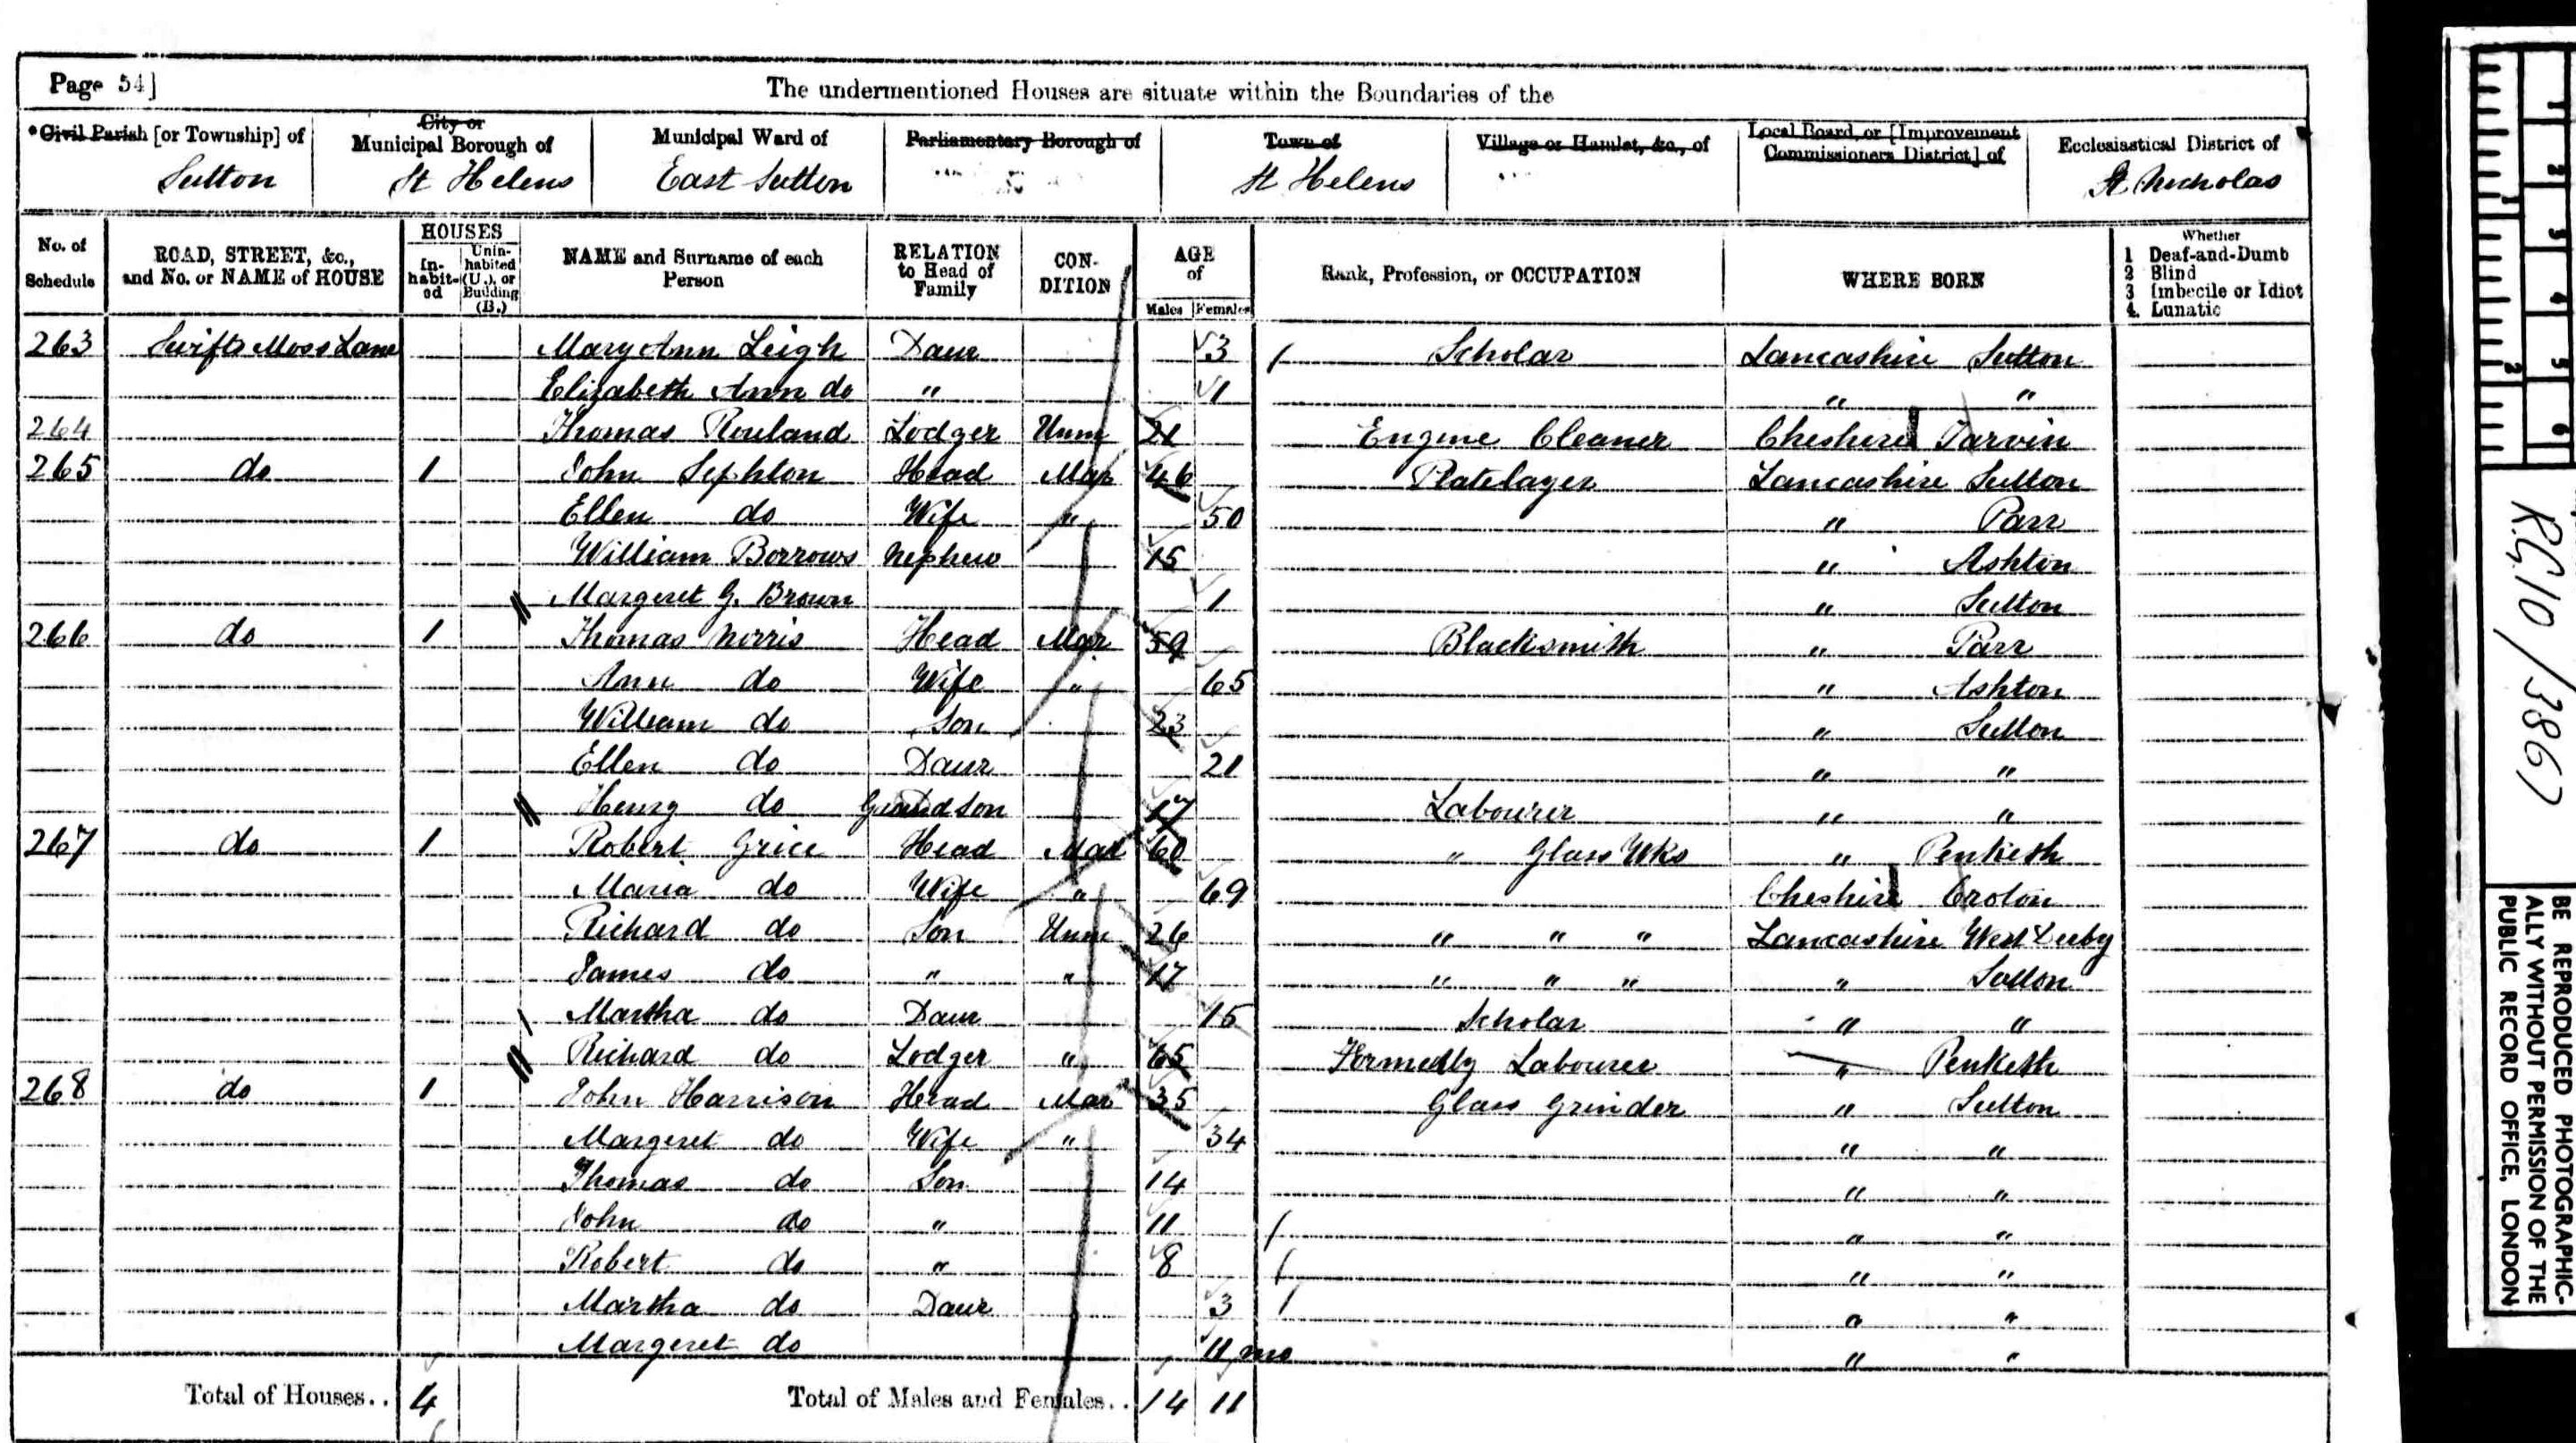 Page 54]
The undermentioned Houses are situate within the Boundaries of the
*Civil Parish [or Township] of
Sutton
City or Municipal Borough of
St Helens
Municipal Ward of
East Sutton
Parliamentary Borough of
Town of
St Helens
Village or Hamlet, &c., of
Local Board, or [Improvement Commissioners District] of
Ecclesiastical District of
St Nicholas
No. of Schedule
ROAD, STREET, &c., and No. or NAME of HOUSE
HOUSES
In-habit-ed
Unin-habited (U.), or Building (B.)
NAME and Surname of each Person
RELATION to Head of Family
CON-DITION
AGE of
Males Females
Rank, Profession, or OCCUPATION
WHERE BORN
Whether
1 Deaf-and-Dumb
2 Blind
3 Imbecile or Idiot
4. Lunatic
263 Swifts Moss Lane Mary Ann Leigh Daur 3 Scholar Lancashire Sutton
Elizabeth Ann do " 1 " "
264 Thomas Rouland Lodger Unm 21 Engine Cleaner Cheshire Tarvin
265 do 1 John Sephton Head Mar 46 Platelayer Lancashire Sutton
Ellen do Wife " 50 " Parr
William Borrows Nephew 15 " Ashton
Margeret G. Brown 1 " Sutton
266 do 1 Thomas Norris Head Mar 59 Blacksmith " Parr
Ann do Wife " 65 " Ashton
William do Son 23 " Sutton
Ellen do Daur 21 " "
Henry do Grandson 17 Labourer " "
267 do 1 Robert Grice Head Mar 60 " Glass Wks " Penketh
Maria do Wife " 69 Cheshire Croton
Richard do Son Unm 26 " " " Lancashire West Derby
James do " " 17 " " " " Sutton
Martha do Daur 15 Scholar " "
Richard do Lodger " 65 Formerly Labourer " Penketh
268 do 1 John Harrison Head Mar 35 Glass Grinder " Sutton
Margeret do Wife " 34 " "
Thomas do Son 14 " "
John do " 11 " "
Robert do " 8 " "
Martha do Daur 3 " "
Margeret do 11 mo " "
Total of Houses.. 4 Total of Males and Females.. 14 11
RG 10 / 3867
BE REPRODUCED PHOTOGRAPHIC-
ALLY WITHOUT PERMISSION OF THE
PUBLIC RECORD OFFICE, LONDON
1 2 3 4 5 6
1 2